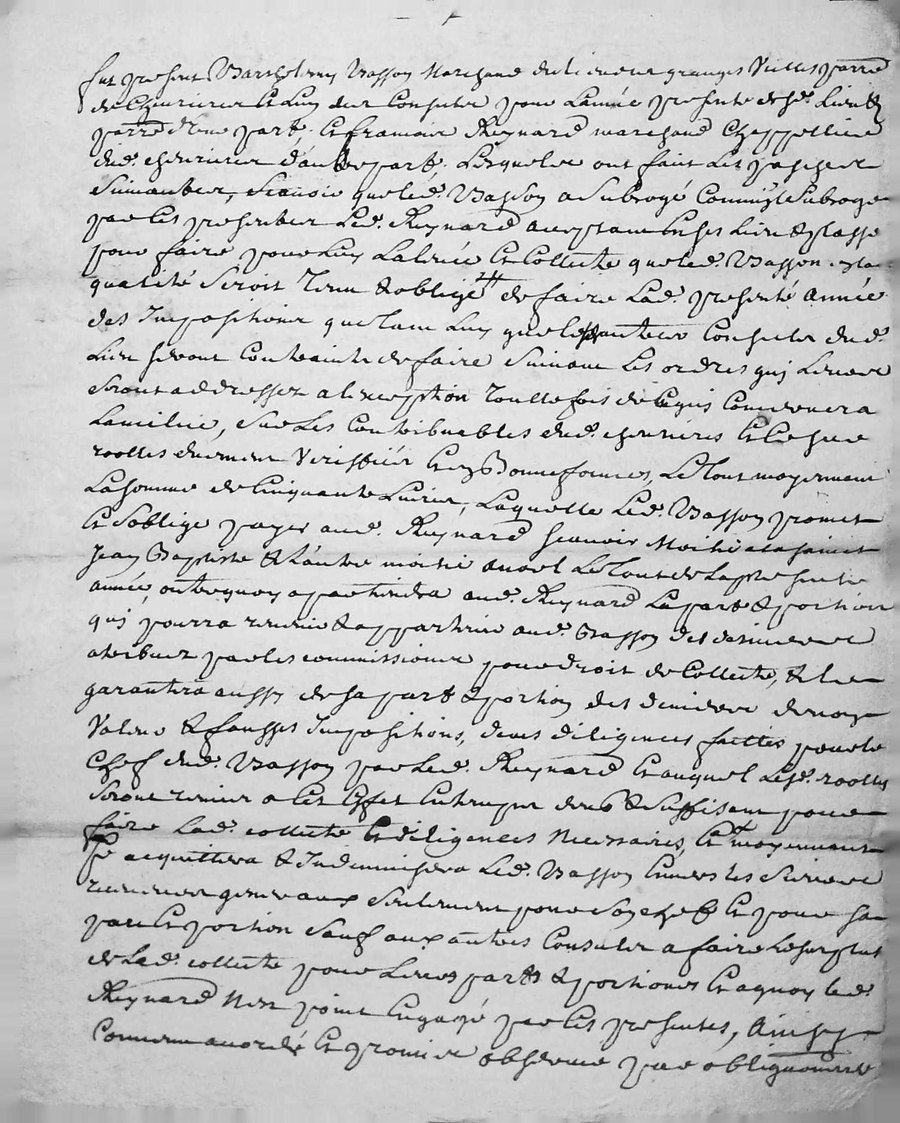 fut present Barthelemy Basson Marchand du lieu de granges Vieilles parre
de Chevrieres Et Luy des Consuls pour Lannée presente dud. Lieu &
parre d'une part, Et francois Reynard marchand Chappellier
dud. chevrieres dautre part, Lesquels ont fait Les pasches
Suivantes, Scavoir queled. Basson a Subrogé Comme Il Subroge
par Les presentes Led. Reynard acceptant En Ses Lieu & plasse
pour faire pour Luy La Levée Et Collecte queled. Basson
qualité Seroit Tenu & obligé de faire Lad. presente année
des Impositions que Tant Luy que les autres Consuls dud.
Lieu seront Contraints de faire Suivant Les ordres quj Leurs
Seront addressez a lexception Touttefois de Ce quj Concernera
La milice, Sur Les Contribuables dud. chevrieres
roolles duement Veriffiés En Bonne forme, Le Tout moyennant
La somme de Cinquante Livres, Laquelle Led. Basson promet
Et Soblige payer aud. Reynard Scavoir Moitié a la saint
Jean Baptiste & L'autre moitié a noel Le Tout de La presente
année, outre quoy apartiendra aud. Reynard La part & portion
quj pourra revenir & appartenir aud. Basson des deniers
atribuez par les commissions pour droit de Collecte, & Le
garantira aussy de sa part & portion des deniers de non
Valeur & fausses Impositions, deues diligences faittes pour le
Chef dud. Basson par Led. Reynard Et auquel Lesd. roolles
Seront remis a Cet Effet En temps deub & Suffisant pour
faire Lad. collecte Et diligences Necessaires, Et moyennant
Ce acquittera & Indemnisera Led. Basson Envers Les Sieurs
receveurs generaux Seulement pour Son chef Et pour Sa
part Et portion Sauf aux autres Consuls a faire Le Surplus
de Lad. collecte pour Leurs parts & portions Et a quoy led.
Reynard N'est point Engagé par Les presentes, Ainsy
Convenu accordé Et promis observer par obligation